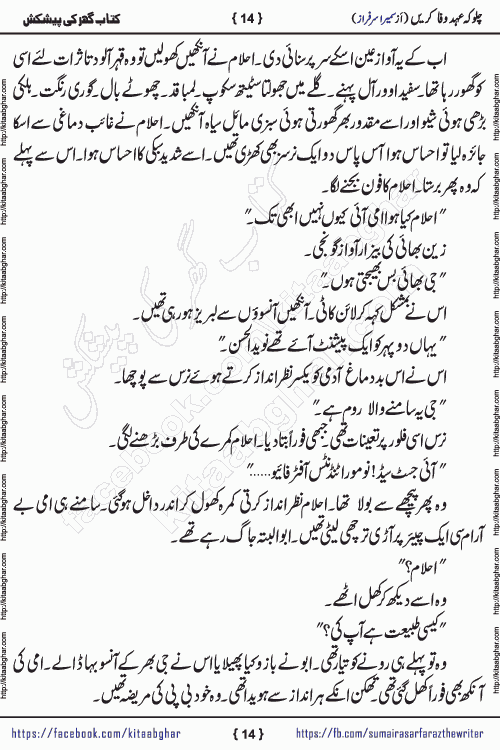 چلو کہ عہدِ وفا کریں (از سمیرا سرفراز) { 14 } کتاب گھر کی پیشکش
اب کے یہ آواز عین اسکے سر پر سنائی دی۔ احلام نے آنکھیں کھولیں تو وہ قہر آلود تاثرات لئے اسی
کو گھور رہا تھا۔ سفید اوور آل پہنے۔ گلے میں جھولتا سٹیتھ سکوپ۔ لمبا قد۔ چھوٹے بال۔ گوری رنگت۔ ہلکی
بڑھی ہوئی شیو اور اسے مقدور بھر گھورتی ہوئی سبزی مائل سیاہ آنکھیں۔ احلام نے غائب دماغی سے اسکا
جائزہ لیا تو احساس ہوا آس پاس دو ایک نرسز بھی کھڑی تھیں۔ اسے شدید سبکی کا احساس ہوا۔ اس سے پہلے
کہ وہ پھر برستا۔ احلام کا فون بجنے لگا۔
"احلام کیا ہوا امی آئی کیوں نہیں ابھی تک۔"
زین بھائی کی بیزار آواز گونجی۔
"جی بھائی بس بھیجتی ہوں۔"
اس نے بمشکل کہہ کر لائن کاٹی۔ آنکھیں آنسوؤں سے لبریز ہو رہی تھیں۔
"یہاں دوپہر کو ایک پیشنٹ آئے تھے نوید الحسن۔"
اس نے اس بد دماغ آدمی کو یکسر نظر انداز کرتے ہوئے نرس سے پوچھا۔
"جی یہ سامنے والا روم ہے۔"
نرس اسی فلور پر تعینات تھی۔ جبھی فوراً بتا دیا۔ احلام کمرے کی طرف بڑھنے لگی۔
"آئی جسٹ سیڈ! نو مور اٹنڈنٹس آفٹر فائیو......"
وہ پھر پیچھے سے بولا تھا۔ احلام نظر انداز کرتی کمرہ کھول کر اندر داخل ہو گئی۔ سامنے ہی امی بے
آرام ہی ایک چیئر پر آڑی ترچھی لیٹی تھیں۔ ابو البتہ جاگ رہے تھے۔
"احلام؟"
وہ اسے دیکھ کر کھل اٹھے۔
"کیسی طبیعت ہے آپ کی؟"
وہ تو پہلے ہی رونے کو تیار تھی۔ ابو نے بازو کیا پھیلایا اس نے جی بھر کے آنسو بہا ڈالے۔ امی کی
آنکھ بھی فوراً کھل گئی تھی۔ تھکن انکے ہر انداز سے ہویدا تھی۔ وہ خود بی پی کی مریضہ تھیں۔
https://facebook.com/kitaabghar { 14 } https://fb.com/sumairasarfarazthewriter
http://kitaabghar.com http://kitaabghar.com http://kitaabghar.com http://kitaabghar.com http://kitaabghar.com http://kitaabghar.com http://kitaabghar.com
http://kitaabghar.com http://kitaabghar.com http://kitaabghar.com http://kitaabghar.com http://kitaabghar.com http://kitaabghar.com http://kitaabghar.com
کتاب گھر کی پیشکش